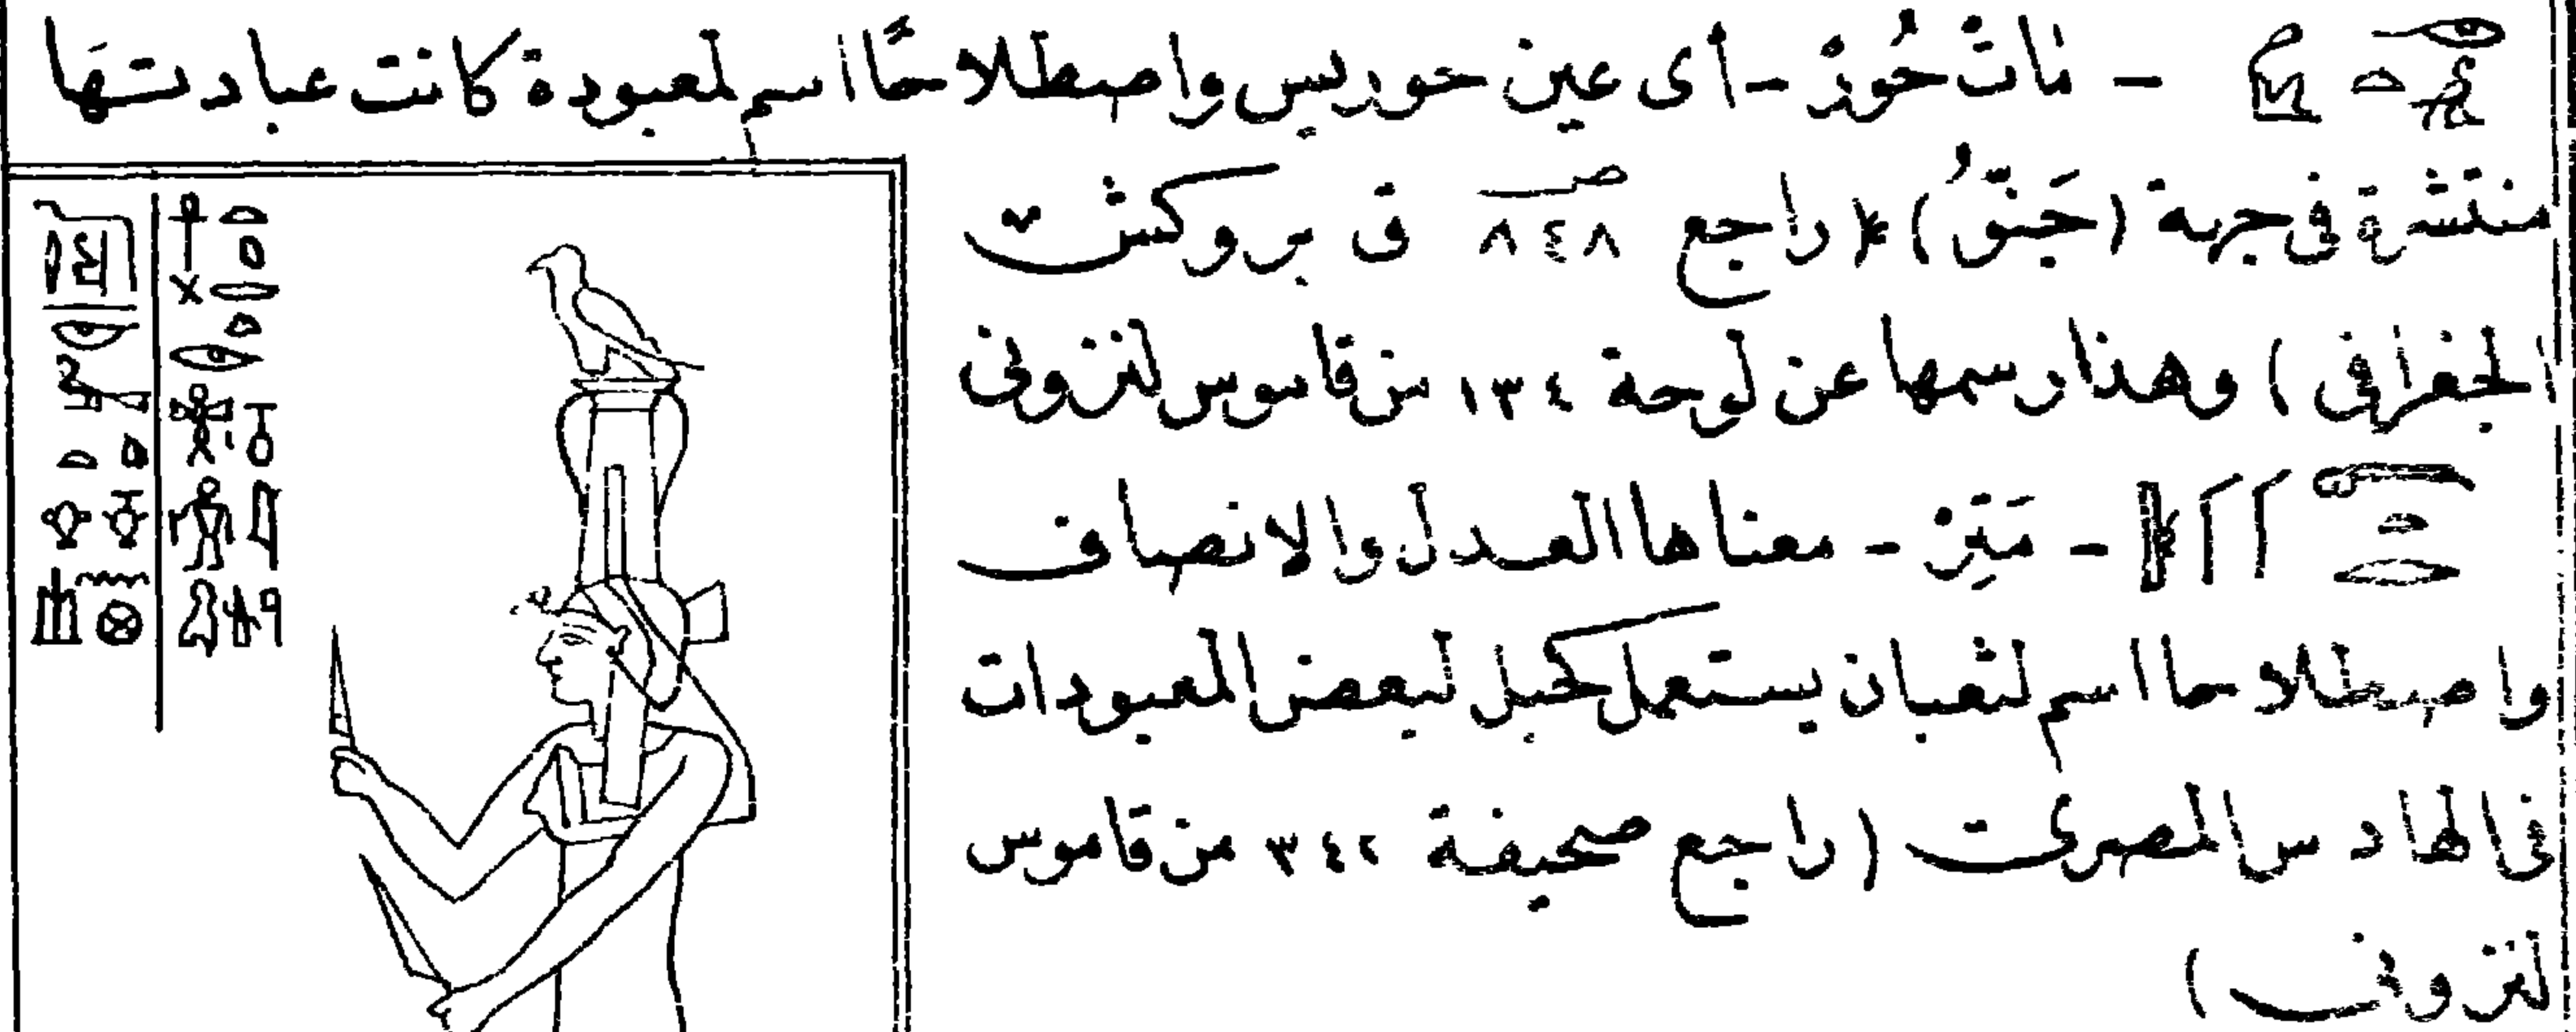 - مَاتْ حُورْ - أى عين حوريس واصطلاحًا اسم لمعبودة كانت عبادتها
منتشرة فى جهة (حَبَنّقُ) راجع صـ ٨٤٨ ق بروكش
الجغرافى) وهذا رسمها عن لوحة ١٣٤ من قاموس لنزونى
- مَتِرْ - معناها العدل والانصاف
واصطلاحا اسم لثعبان يستعمل كحبل لبعض المعبودات
فى الهادس المصرى (راجع صحيفة ٣٤٢ من قاموس
لنزونى)